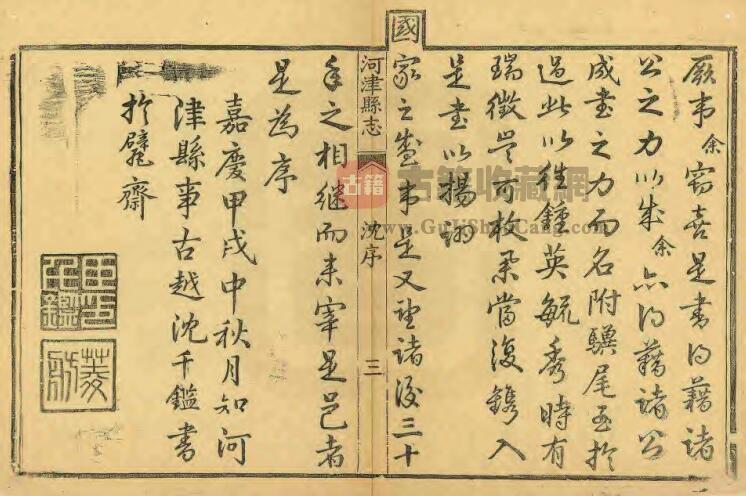 厥事余窃喜是書得藉諸
公之力以成余亦得藉諸公
成書之力而名附驥尾至於
過此以往鍾英毓秀時有
瑞徵豈可枚舉當復鐫入
是書以揚詡
國家之盛事是又望諸後三十
河津縣志 沈序 三
年之相繼而来宰是邑者
是為序
嘉慶甲戌中秋月知河
津縣事古越沈千鑑書
於甓齋
古籍
古籍收藏网
www.GuJiShouCang.com